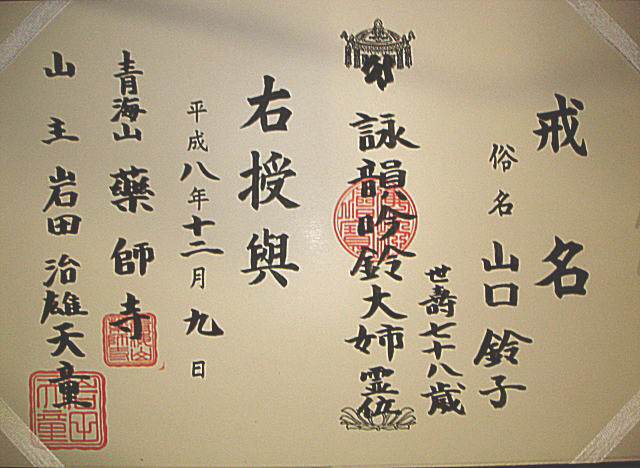 戒名
俗名 山口鈴子
世壽七十八歳
詠韻吟鈴大姉霊位
右授與
平成八年十二月九日
青海山 藥師寺
山主 岩田治雄天童